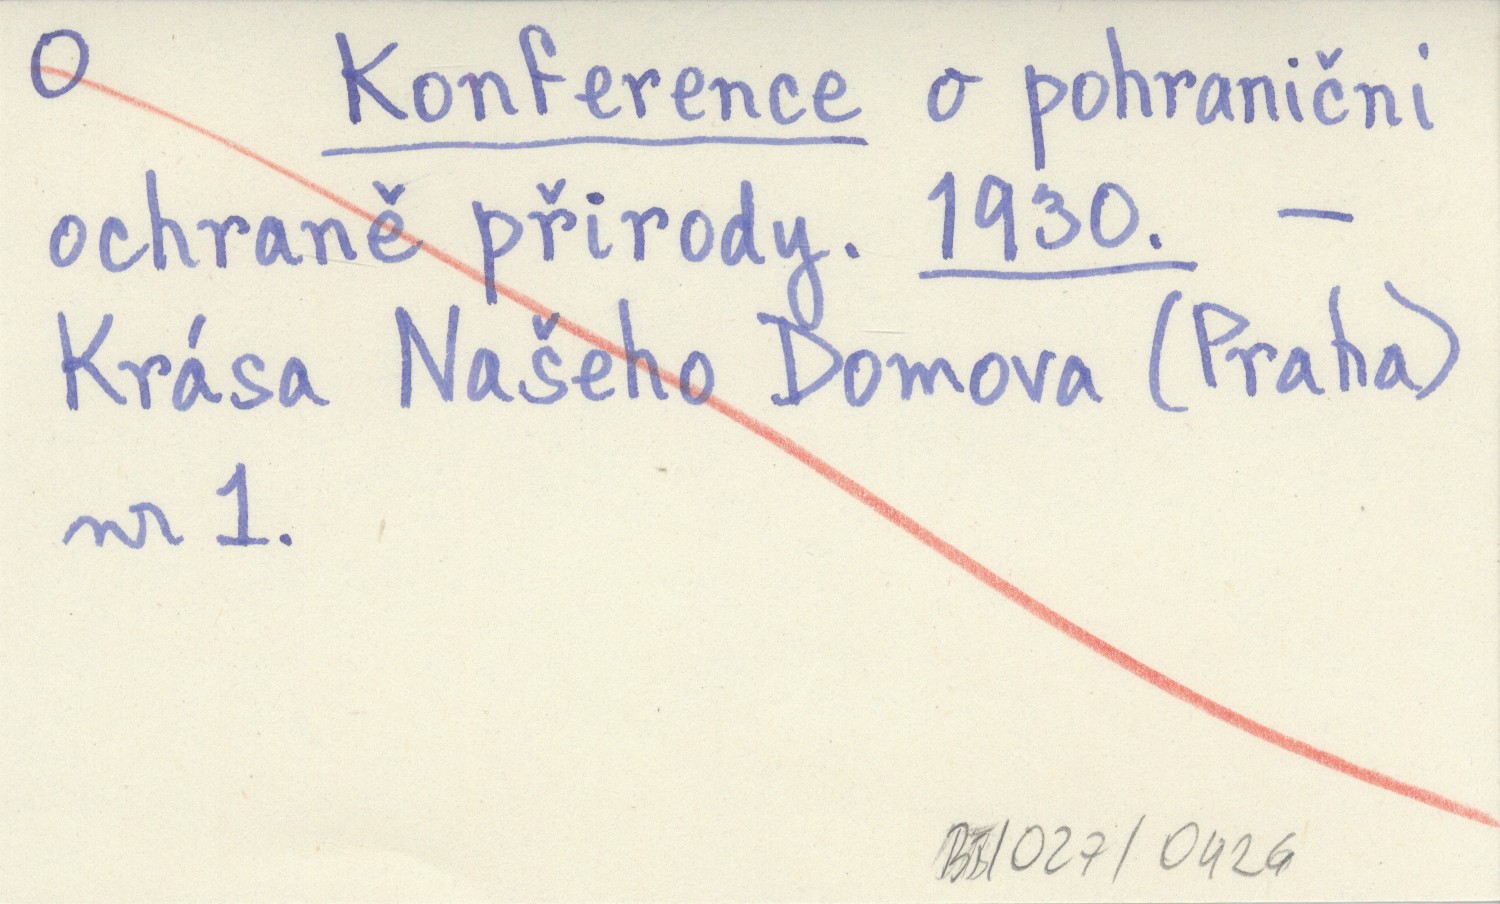 O Konference o pohranični
ochraně přirody. 1930. —
Krása Našeho Domova (Praha)
nr 1.
/027/0426